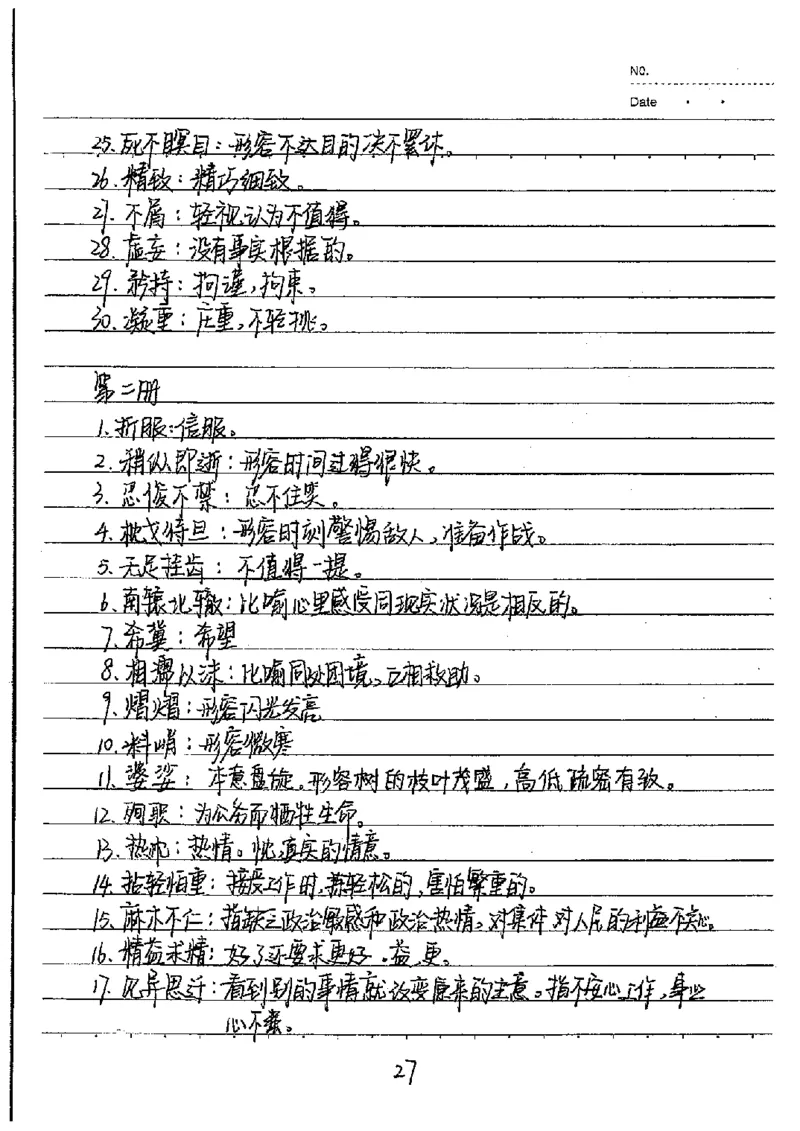 NO.
Date
25.死不瞑目：形容不达目的决不罢休。
26.精致：精巧细致。
27.不屑：轻视认为不值得。
28.虚妄：没有事实根据的。
29.矜持：拘谨,拘束。
30.凝重：庄重,不轻挑。
第二册
1.折服：信服。
2.稍纵即逝：形容时间过得很快。
3.忍俊不禁：忍不住笑。
4.枕戈待旦：形容时刻警惕敌人,准备作战。
5.无足挂齿：不值得一提。
6.南辕北辙：比喻心里感受同现实状况是相反的。
7.希冀：希望
8.相濡以沫：比喻同处困境,互相救助。
9.熠熠：形容闪光发亮
10.料峭：形容微寒
11.婆娑：本意盘旋。形容树的枝叶茂盛,高低疏密有致。
12.殉职：为公务而牺牲生命。
13.热忱：热情。忱真实的情意。
14.拈轻怕重：接受工作时,拣轻松的,害怕繁重的。
15.麻木不仁：指缺乏政治敏感和政治热情,对集体对人民的利益不关心。
16.精益求精：好了还要求更好.益,更。
17.见异思迁：看到别的事情就改变原来的主意。指不安心工作,事业
心不强。
27